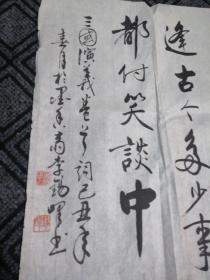 逢古今多少事
都付笑談中
三國演義卷首詞己丑年
春月於墨香齋李勁書